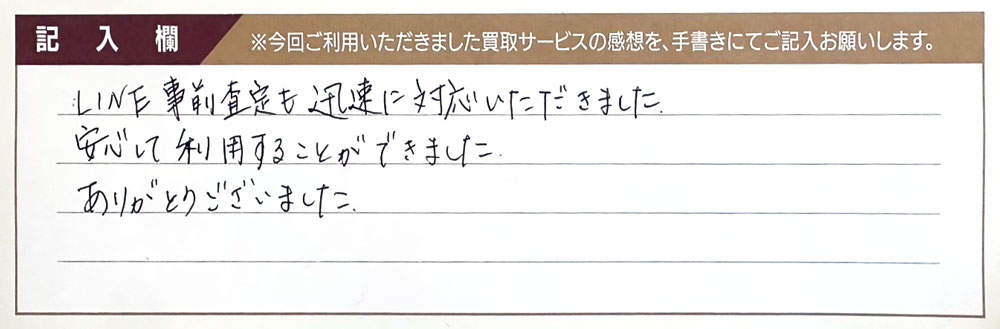 記入欄 ※今回ご利用いただきました買取サービスの感想を、手書きにてご記入お願いします。
LINE事前査定も迅速に対応いただきました.
安心して利用することができました.
ありがとうございました.